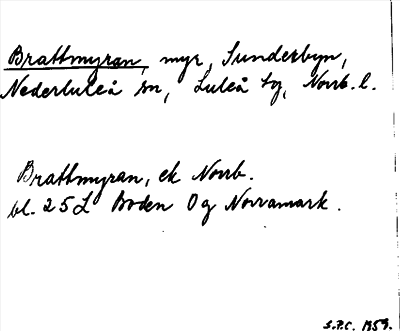 Brattmyran, myr, Sunderbyn,
Nederluleå sn, Luleå tg, Norrb. l.
Brattmyran, ek Norrb.
bl. 25L Boden Og Norramark.
S.P.C. 1959.